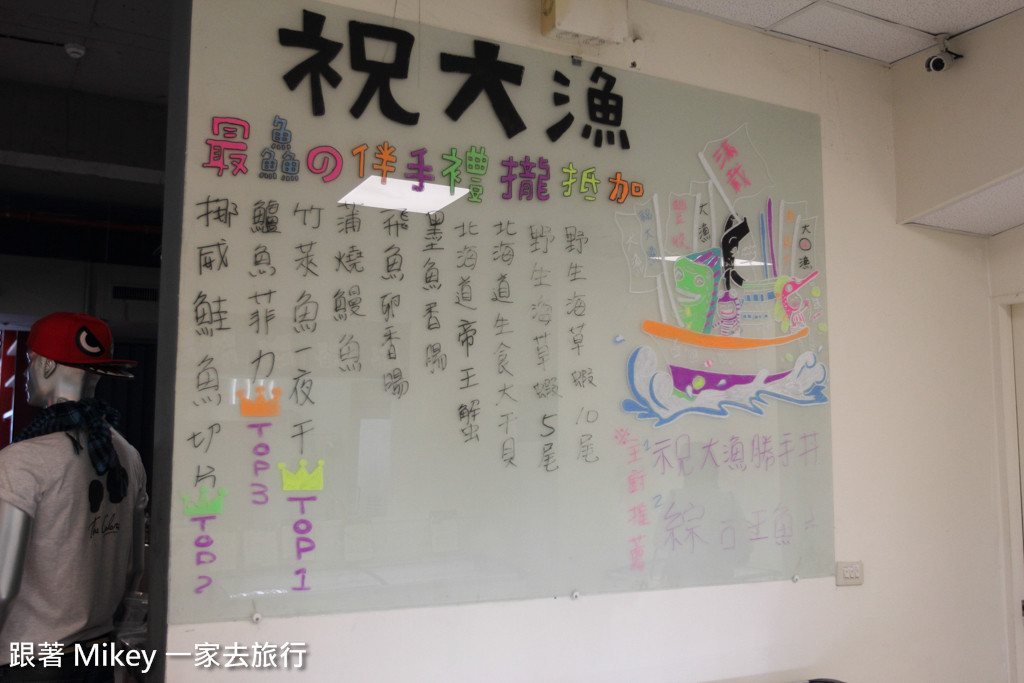 祝大漁
最鱻の伴手禮攏抵加
野生海草蝦10尾
野生海草蝦5尾
北海道生食大干貝
北海道帝王蟹
墨魚香腸
飛魚卵香腸
蒲燒鰻魚
竹萊魚一夜干
TOP1
鱸魚菲力
TOP3
挪威鮭魚切片
TOP2
大漁
大漁
主廚推薦
1 祝大漁勝手丼
2 綜合
The
跟著 Mikey 一家去旅行